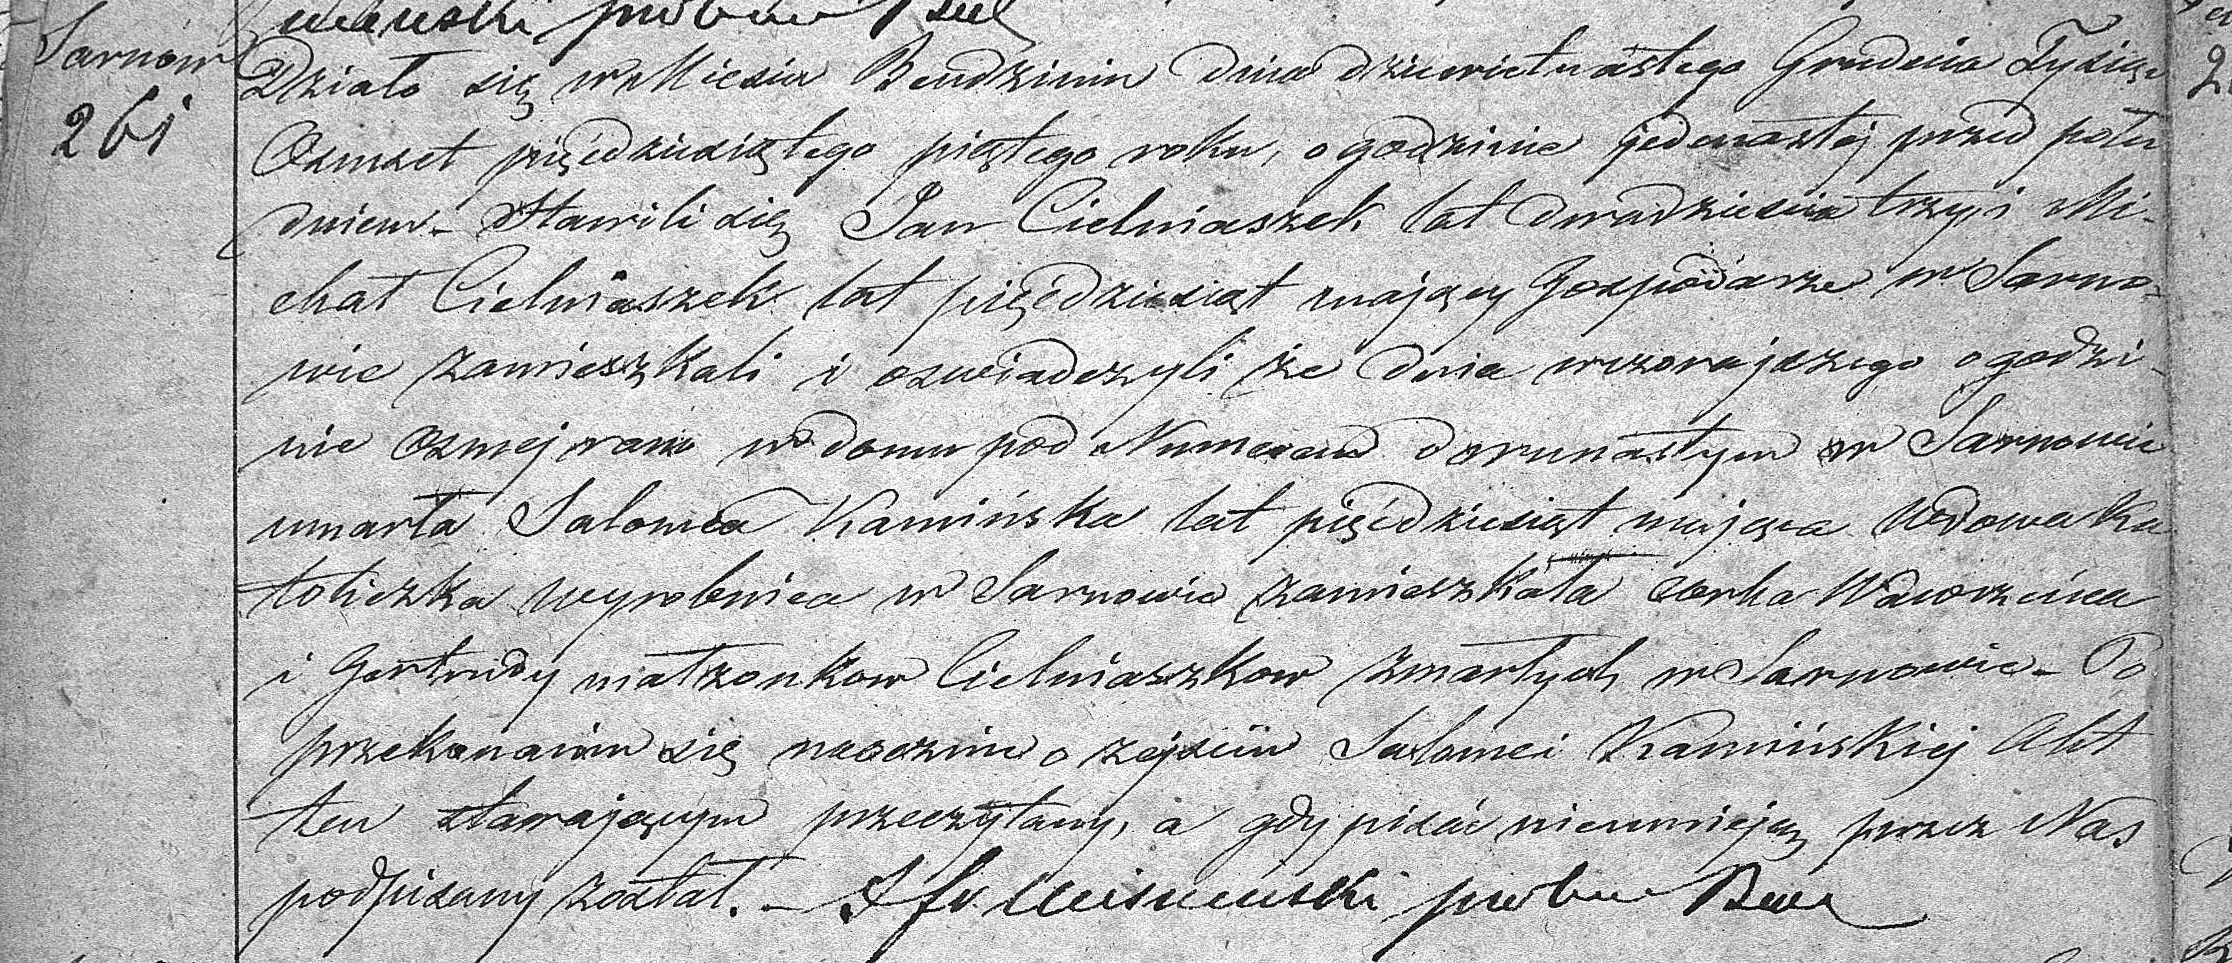 Sarnow
261
Działo się w Mieście Bendzinie dnia dziewietnastego Grudnia Tysiąc
Osmset pięćdziesiątego piątego roku, o godzinie jedenastej przed połu
dniem. Stawili się Jan Cielniaszek lat dwadzieścia trzy i Mi-
chał Cielniaszek lat pięćdziesiąt mający Gospodarze w Sarno-
wie zamieszkali i oswiadczyli że dnia wczorajszego o godzi-
nie osmej rano w domu pod Numerem dwunastym w Sarnowie
umarła Salomea Kamińska lat pięćdziesiąt mająca Wdowa Ka
toliczka wyrobnica w Sarnowie zamieszkała corka Wawrzeńca
i Gertrudy małzonkow Cielniaszkow zmarłych w Sarnowie - Po
przekonaniu się naocznie o zejściu Salomei Kamińskiej Akt
ten stawającym przeczytany, a gdy pisać nieumieją przez Nas
podpisany został. -